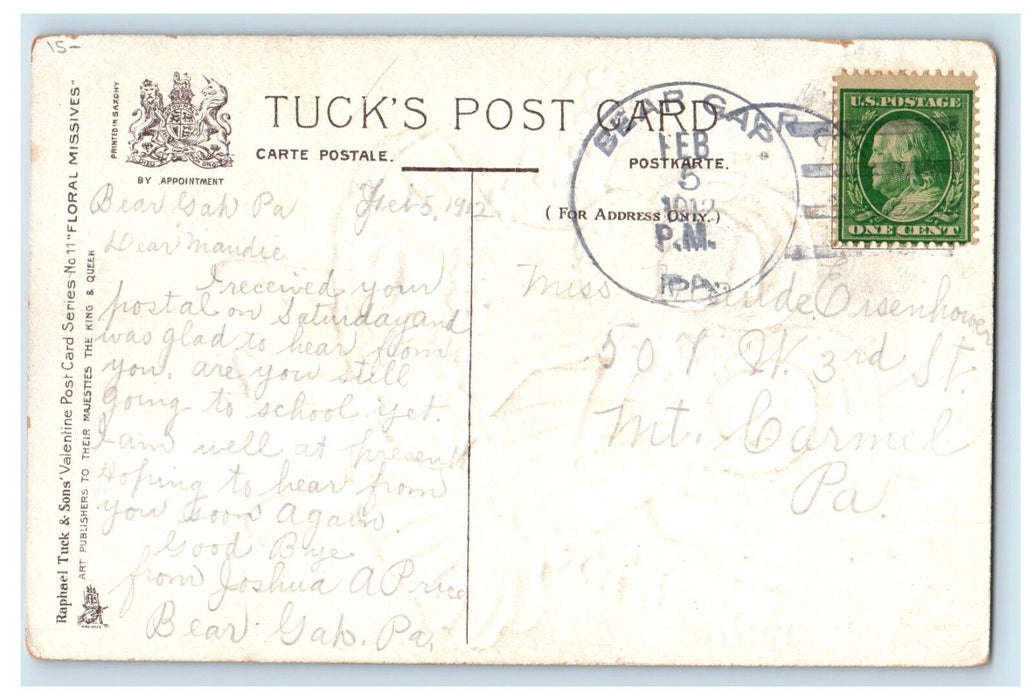 15-
Raphael Tuck & Sons' Valentine Post Card Series No 11 "FLORAL MISSIVES"
ART PUBLISHERS TO THEIR MAJESTIES THE KING & QUEEN
PRINTED IN SAXONY
BY APPOINTMENT
TUCK'S POST CARD
CARTE POSTALE.
POSTKARTE.
(FOR ADDRESS ONLY.)
BEAR GAP
FEB
5
1912
P.M.
PA.
U.S. POSTAGE
ONE CENT
Bear Gap Pa Feb 5, 1912
Dear Maudie
I received your
postal on Saturday and
was glad to hear from
you. are you still
going to school yet.
I am well at present
Hoping to hear from
you soon again
Good Bye
from Joshua A Price
Bear Gap. Pa,
Miss Maude Eisenhower
507 W. 3rd St.
Mt. Carmel
Pa.